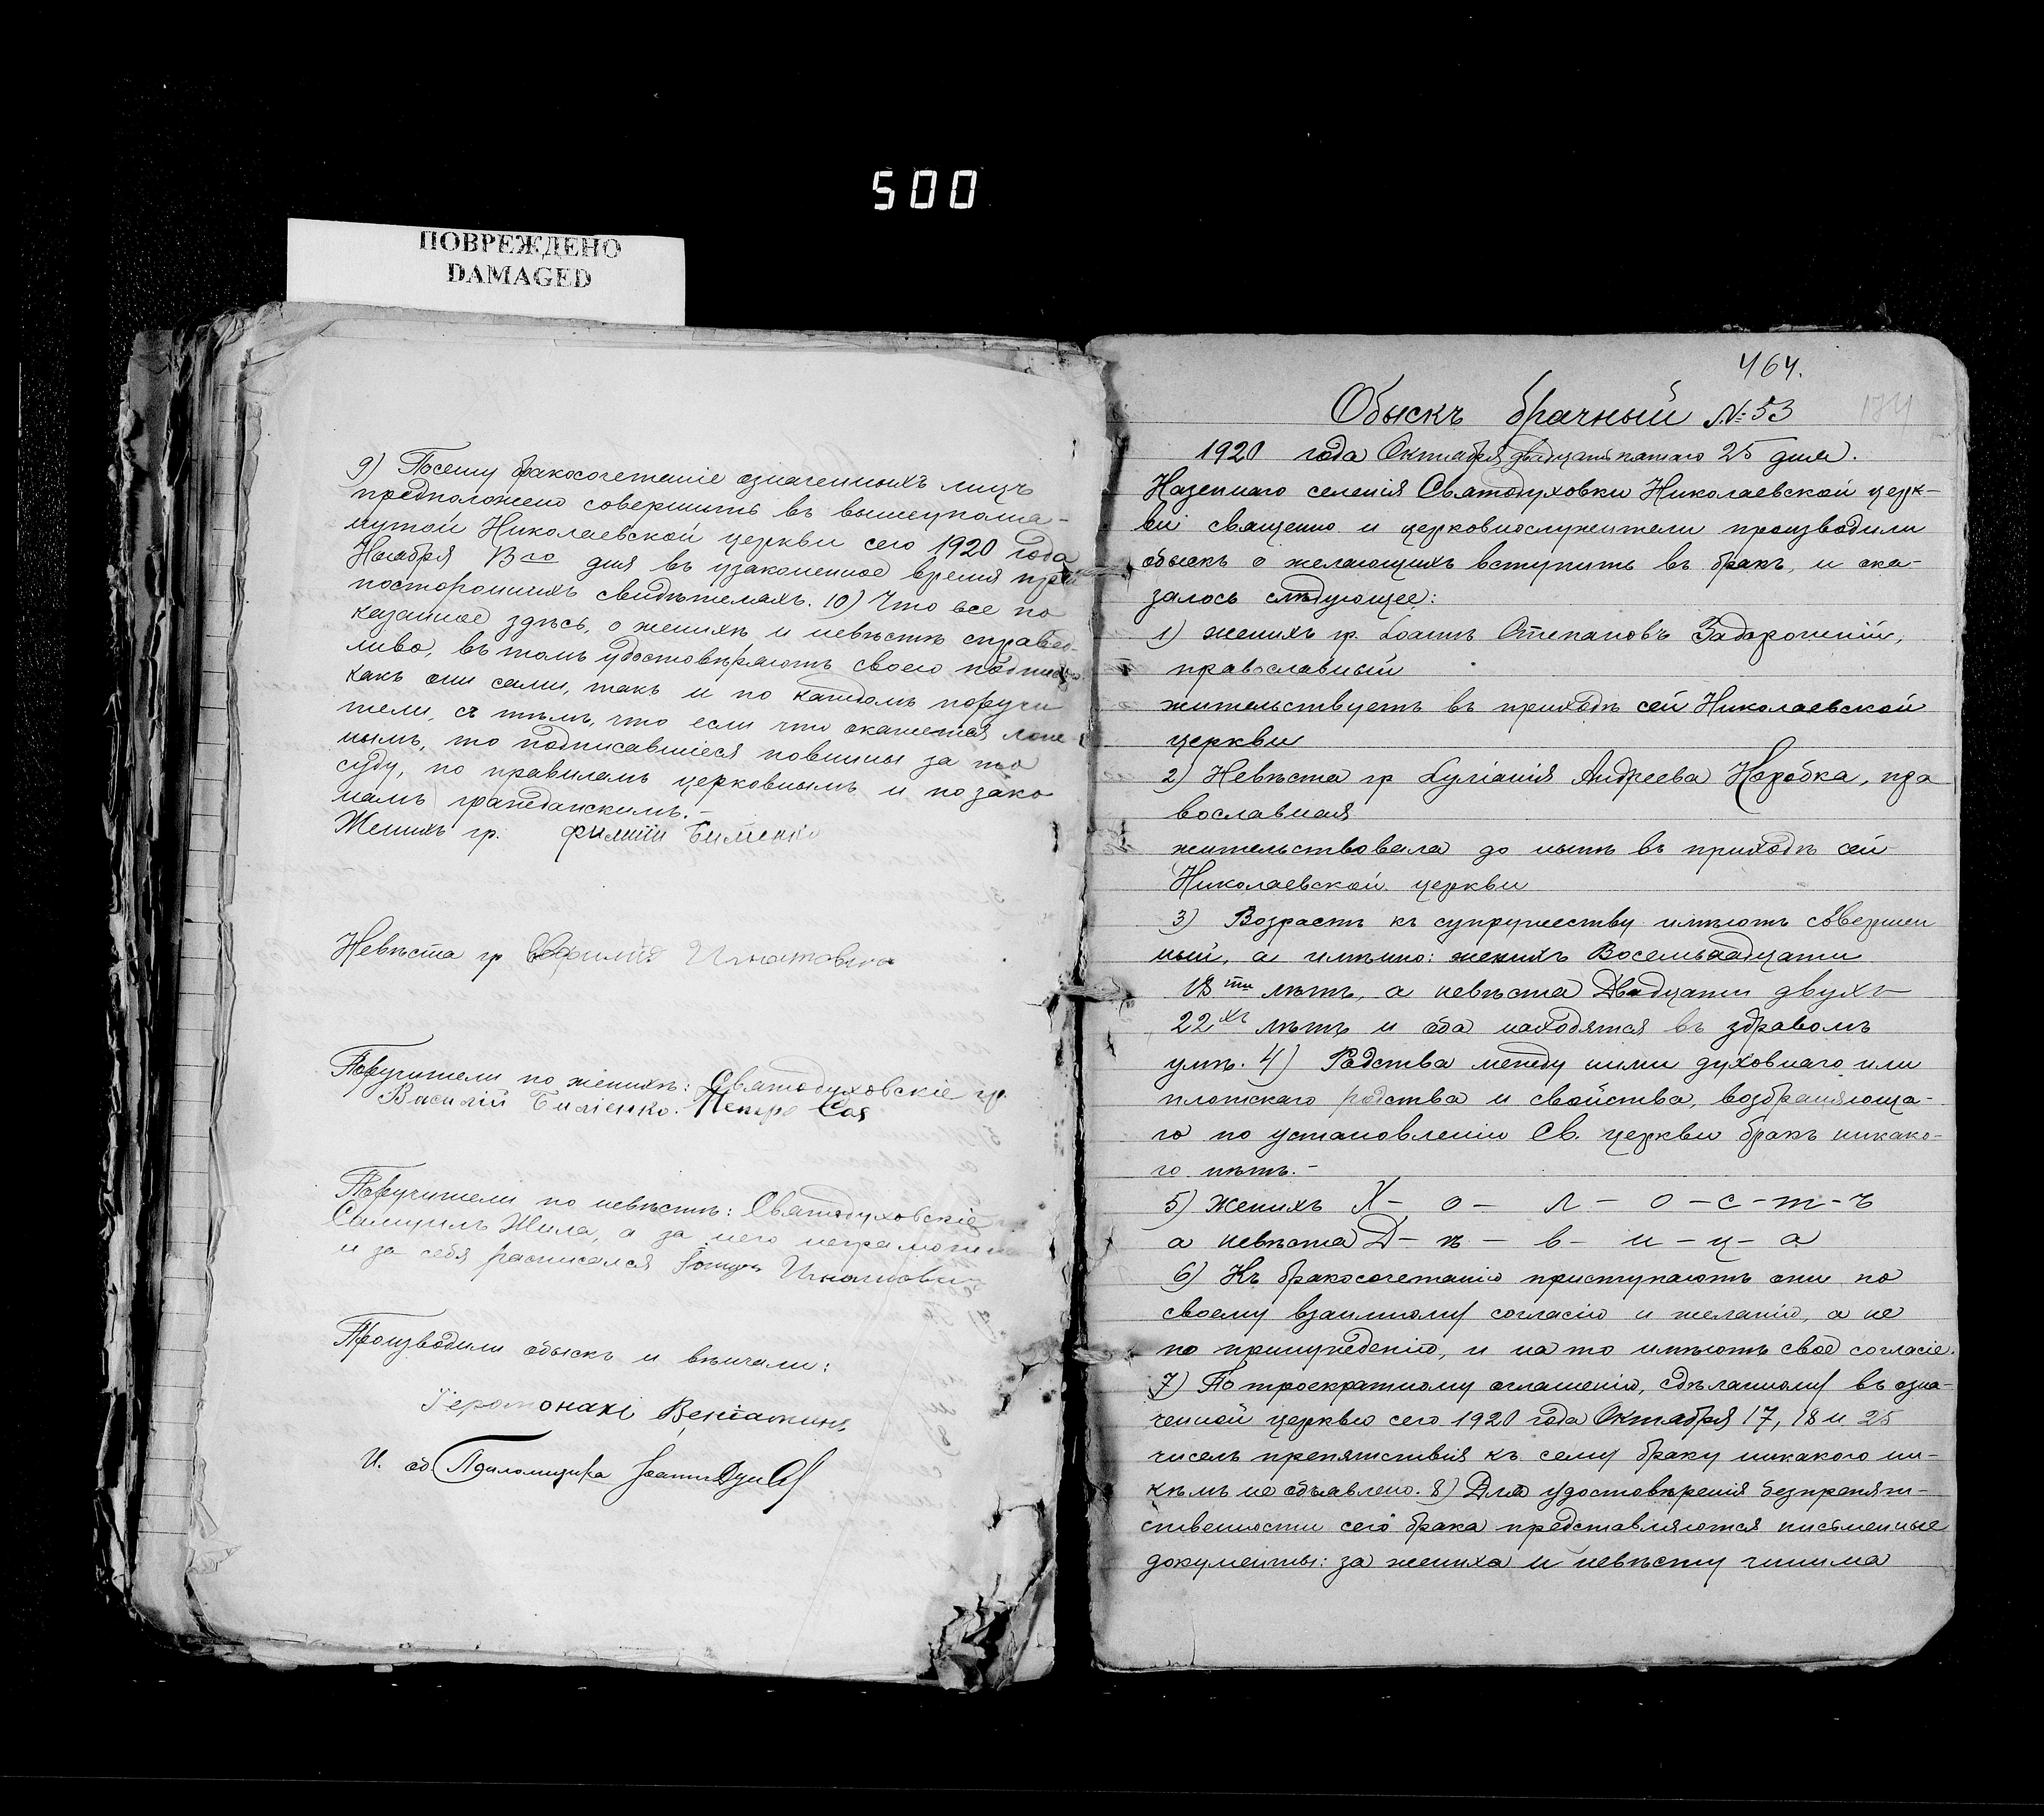 500
ПОВРЕЖДЕНО
DAMAGED
9) Посему бракосочетаніе означенныхъ лицъ
предположено совершить въ вышеупомя-
нутой Николаевской церкви сего 1920 года
Ноября дня въ узаконенное время при
постороннихъ свидѣтеляхъ. 10) Что все по
казанное здѣсь, о женихѣ и невѣстѣ справед-
ливо, въ томъ удостовѣряютъ своею подписью
какъ они сами, такъ и по каждомъ поручи
тели, съ тѣмъ, что если что окажется лож
нымъ, то подписавшіеся повинны за то
суду, по правиламъ церковнымъ и по зако
намъ гражданскимъ.-
Женихъ гр. Филипп Билиенко
Невѣста гр Игнатовна
Поручители по женихѣ: Святодуховскіе гр.
Василій Билиенко. Петро Соя
Поручители по невѣстѣ: Святодуховскіе
Самуилъ Жила, а за него неграмотнаго
и за себя расписался
Производили обыскъ и вѣнчали:
Іеромонахъ Веніаминъ
И. об. Псаломщика Іоаннъ
464.
174
Обыскъ брачный № 53
1920 года Октября двадцать пятаго 25 дня.
Казеннаго селенія Святодуховки Николаевской церк-
ви священно и церковнослужители производили
обыскъ о желающихъ вступить въ бракъ, и ока-
залось слѣдующее:
1) женихъ гр. Іоаннъ Степановъ Задорожній,
православный
жительствуетъ въ приходѣ сей Николаевской
церкви
2) Невѣста гр Іуліанія Андреева Коробка, пра
вославная
жительствовала до нынѣ въ приходѣ сей
Николаевской церкви
3) Возрастъ къ супружеству имѣютъ совершен
ный, а имѣнно: женихъ Восемьнадцати
18ти лѣтъ, а невѣста Двадцати двухъ
22хъ лѣтъ и оба находятся въ здравомъ
умѣ. 4) Родства между ними духовнаго или
плотскаго родства и свойства, возбраняюща-
го по установленію Св. церкви бракъ никако-
го нѣтъ.-
5) женихъ Х- о - л - о - с - т - ъ
а невѣста Д - ѣ - в - и - ц - а
6) Къ бракосочетанію приступаютъ они по
своему взаимному согласію и желанію, а не
по принужденію, и на то имѣютъ свое согласіе.
7) По троекратному оглашенію, сдѣланному въ озна-
ченной церквью сего 1920 года Октября 17, 18 и 25
числъ препятствія къ сему браку никакого ни-
кѣмъ не объявлено. 8) Для удостовѣренія безпрепят-
ственности сего брака представляются письменные
документы: за жениха и невѣсту